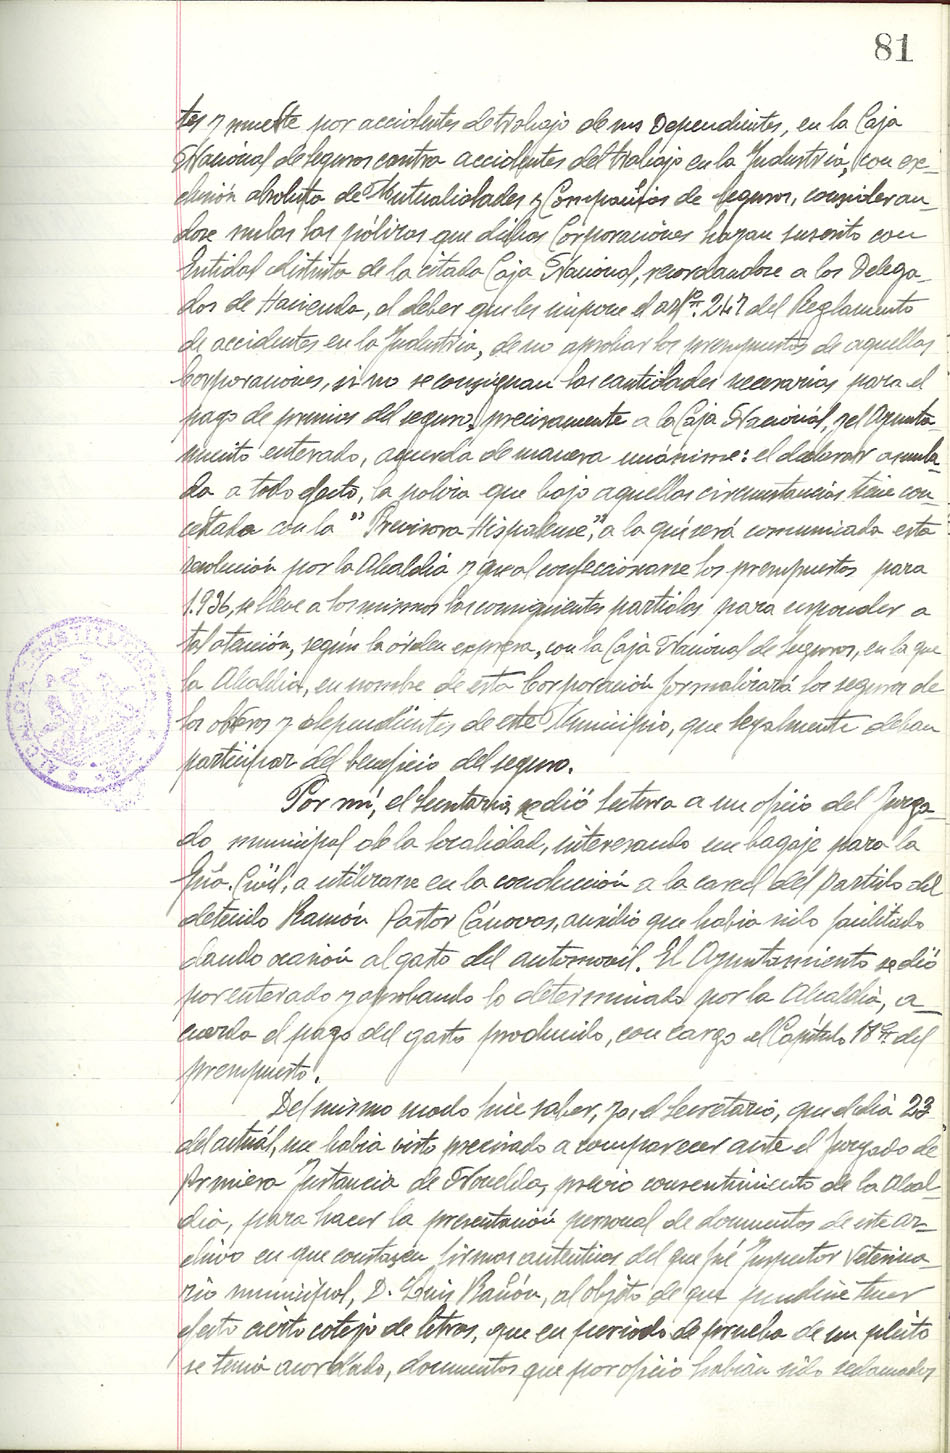 81
tes y muerte por accidentes de trabajo de sus Dependientes, en la Caja
Nacional de Seguros contra accidentes del trabajo en la Industria, con ex-
clusión absoluta de Mutualidades y Compañias de seguros, consideran-
dose nulas las pólizas que dichas Corporaciones hayan suscrito con
Entidad distinta de la citada Caja Nacional, recordandose a los Delega-
dos de Hacienda, el deber que les impone el artº. 247 del Reglamento
de accidentes en la Industria, de no aprobar los presupuestos de aquellas
Corporaciones, si no se consignan las cantidades necesarias para el
pago de premios del seguro, precisamente a la Caja Nacional, y el Ayunta-
miento enterado, acuerda de manera unánime: el declarar anula-
da a todo efecto, la poliza que bajo aquellas circunstancias tiene con-
certada con la "Previsora Hispalense", a la que será comunicada esta
resolución por la Alcaldia y que al confeccionarse los presupuestos para
1.936, se lleve a los mismos las consiguientes partidas para responder a
tal atención, según la órden expresa, con la Caja Nacional de Seguros, en la que
la Alcaldia, en nombre de esta Corporación formalizará los seguros de
los obreros y dependientes de este Municipio, que legalmente deban
participar del beneficio del seguro.
Por mí, el Secretario, se dió lectura a un oficio del Juzga-
do municipal de la localidad, interesando un bagaje para la
Gúa. Civil, a utilizarse en la conducción a la carcel del partido del
detenido Ramón Pastor Cánovas, auxilio que habia sido facilitado
dando ocasión al gasto del automovil. El Ayuntamiento se dió
por enterado y aprobando lo determinado por la Alcaldia, a-
cuerda el pago del gasto producido, con cargo al Capítulo 18º del
presupuesto.
Del mismo modo hice saber, yo, el Secretario, que el dia 23
del actuál, me habia visto precisado a comparecer ante el Juzgado de
Primera Instancia de Novelda, previo consentimiento de la Alcal-
dia, para hacer la presentación personal de documentos de este ar-
chivo en que constasen firmas autenticas del que fué Inspector Veterina-
rio municipal, D. Luis, al objeto de que pudiese tener
efecto cierto cotejo de letras, que en periodo de prueba de un pleito
se tenia acordado, documentos que por oficio habian sido reclamados